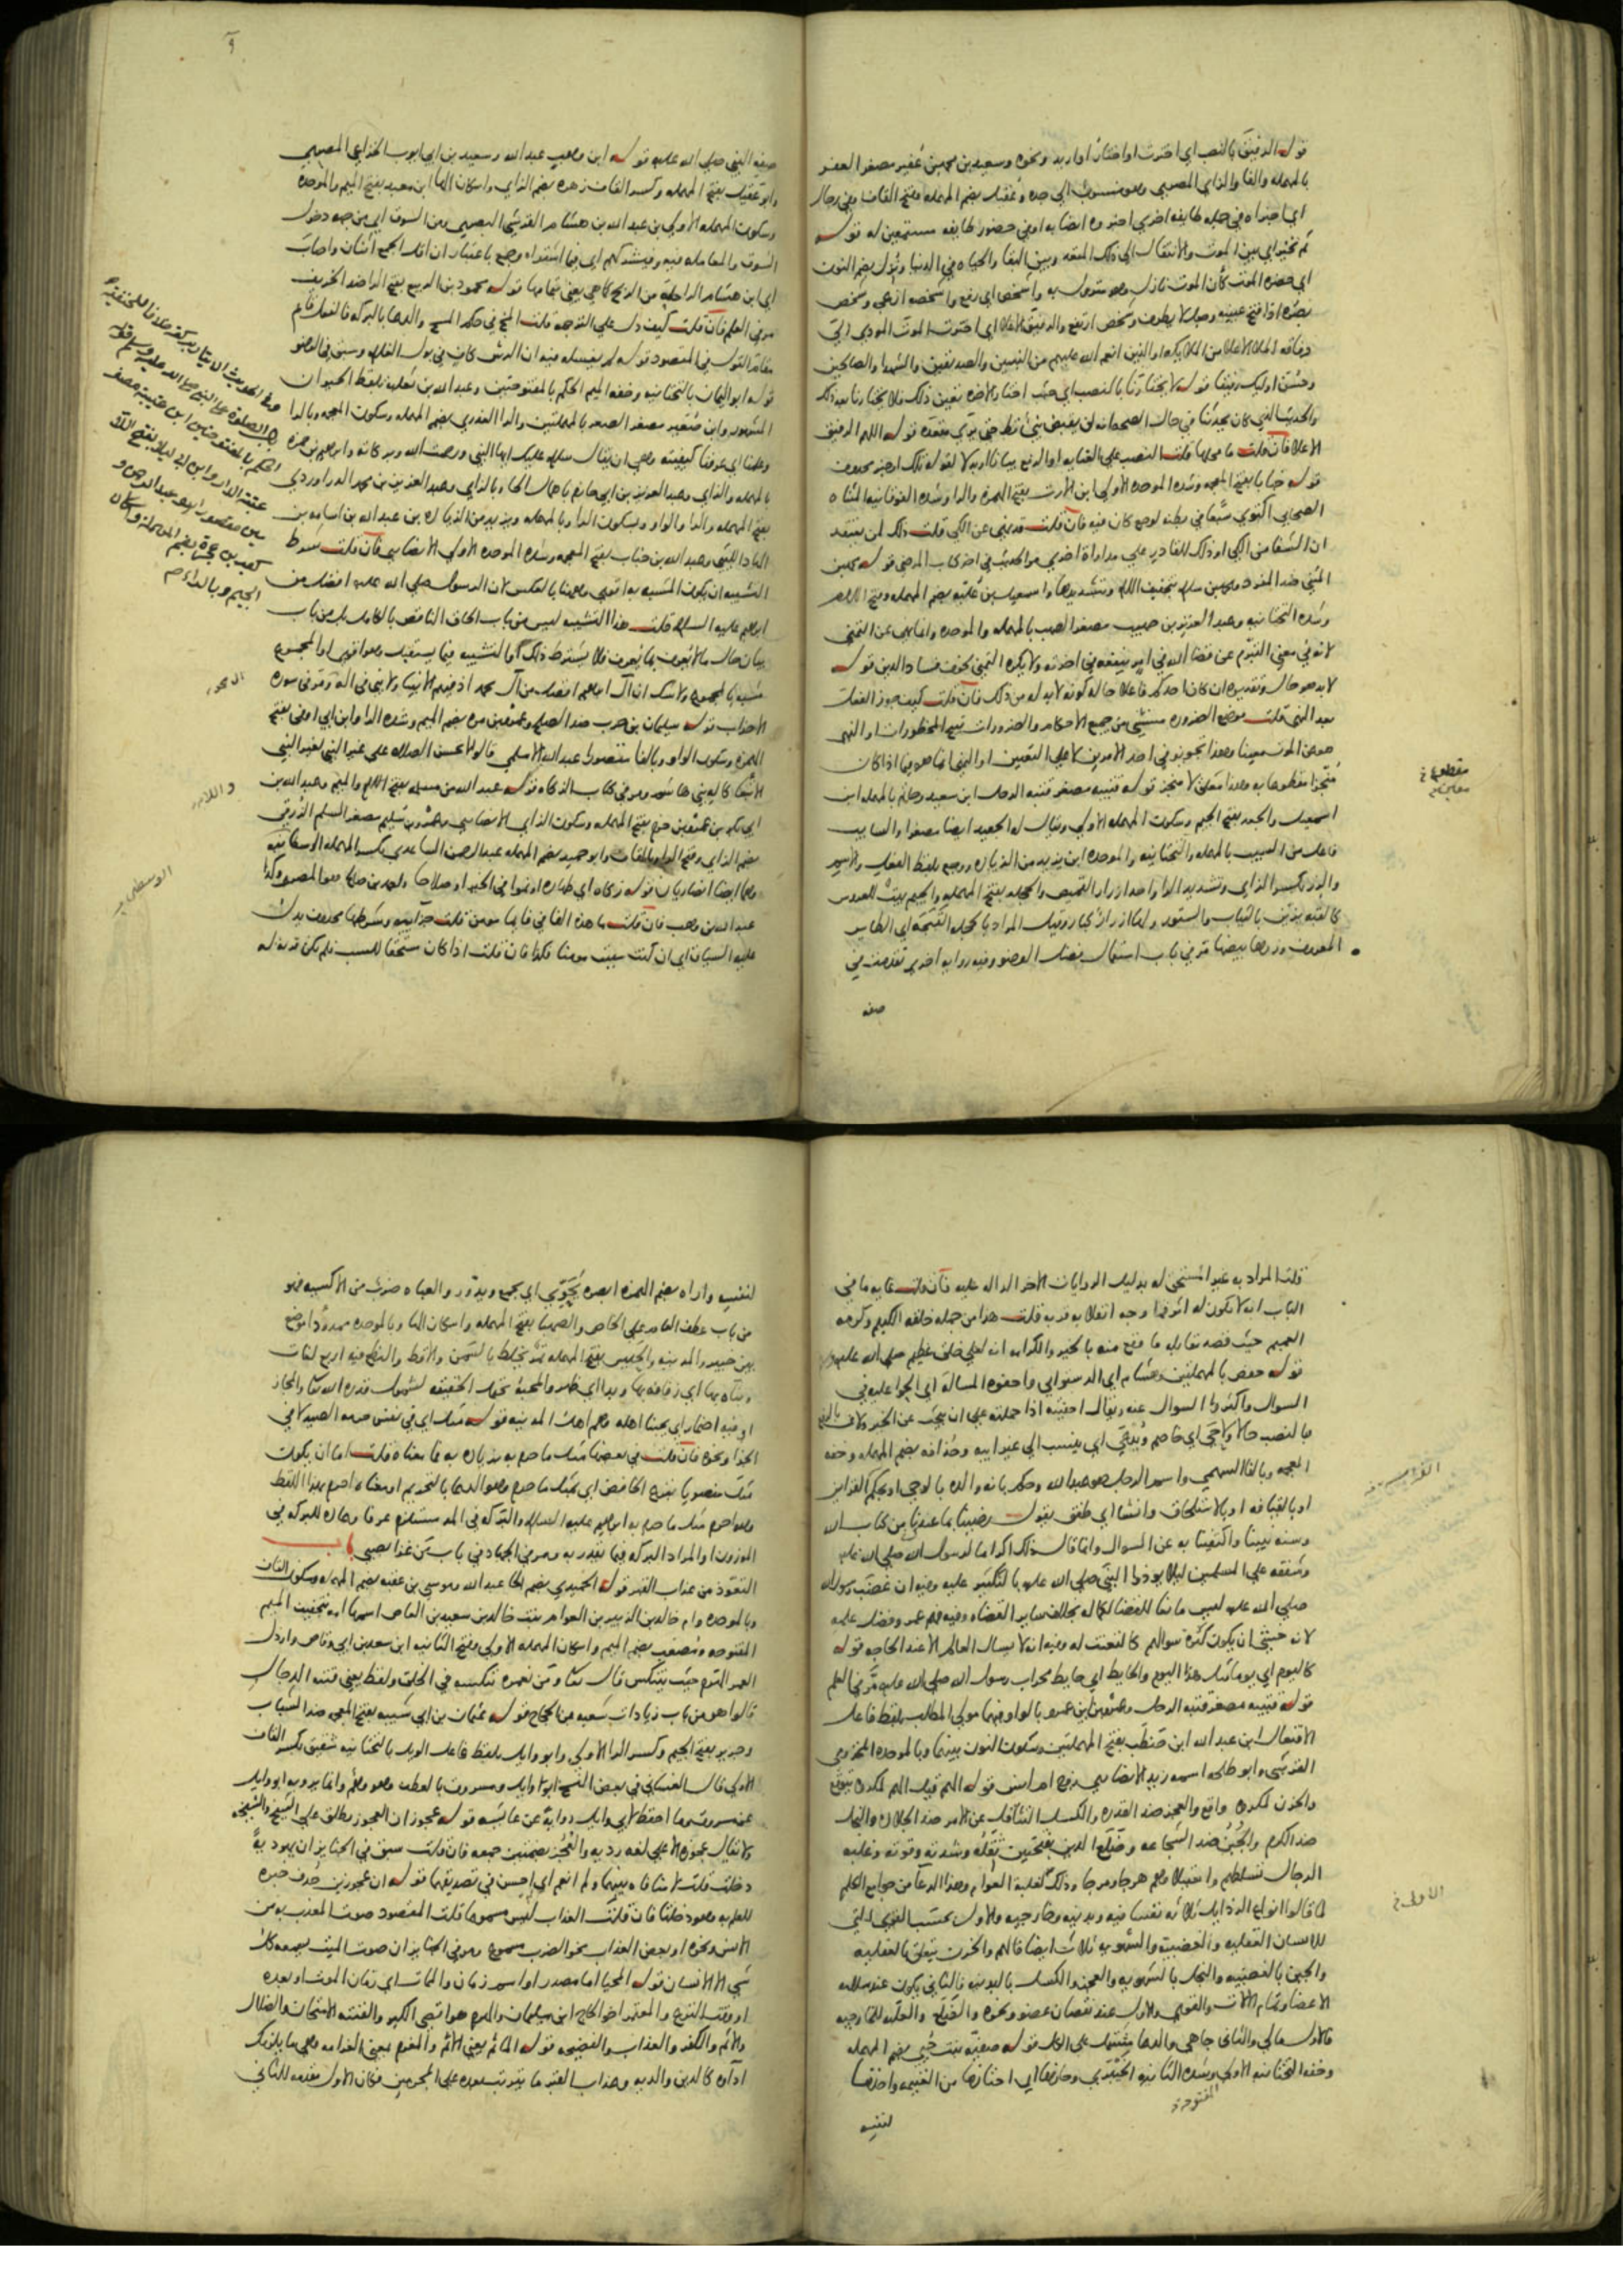 قوله الرفيق بالنصب اي اخترت او اختار او اريد ونحوه وسعيد بن محمد بن عفير مصغر العفر
بالمهمله والفا والراي المصري وهو منسوب الي جده وعقيل بضم المهمله وفتح القاف وفي رجال
اي اخبراه في جمله طايفه اخري اخبروه ايضا به او في حضور طايفه مستمعين له قوله
ثم يخير اي بين الموت والانتقال الي ذلك المقعد وبين البقا والحياه في الدنيا ونزل بضم النون
اي حضره الموت كان الموت نازل وهو منزول به واشخص اي رفع واشخصه ازعجه وشخص
بصره اذا فتح عينيه وجعل لا يطرف وشخص ارتفع والرفيق الاعلا اي اخترت الموت المودي الي
رفاقه الملا الاعلا من الملايكه او الذين انعم الله عليهم من النبيين والصديقين والشهدا والصالحين
وحسن اوليك رفيقا قوله لا يختارنا بالنصب اي حيث اختار الاخره تعين ذلك فلا يختارنا بعد ذلك
والحديث الذي كان يحدثنا في حال الصحه انه لن يقبض نبي قط حتي يري مقعده قوله اللهم الرفيق
الاعلا فان قلت ما محلها قلت النصب علي العنايه او الرفع بيانا او بدلا لقوله تلك او خبر محذوف
قوله خباب بفتح المعجمه وشده الموحده الاولي ابن الارت بفتح الهمزه والرا وشده الفوقانيه المثناه
الصحابي اكتوي سبعا في بطنه لوجع كان فيه فان قلت قد نهي عن الكي قلت ذلك لمن يعتقد
ان الشفا من الكي او ذلك للقادر علي مداواة اخري مر الحديث في اخر كتاب المرضي قوله محمد بن
المثني ضد المفرد ومحمد بن سلام بتخفيف اللام وتشديدها واسمعيل بن علية بضم المهمله وفتح اللام
وشده التحتانيه وعبد العزيز بن صهيب مصغر الصهب بالمهمله والموحده وانما نهي عن التمني
لانه في معني التبرم عن قضا الله في امر ينفعه في اخرته ولا يكره التمني لخوف فساد الدين قوله
لا بد هو حال وتقديره ان كان احدكم فاعلا حاله كونه لا بد له من ذلك فان قلت كيف جوز الفعل
بعد النهي قلت موضع الضروره مستثني من جميع الاحكام والضرورات تبيح المحظورات او النهي
هو عن الموت معينا وهذا تجويز في احد الامرين لا علي التعيين او النهي انما هو فيما اذا كان
منجزا مقطوعا به وهذا معلق لا منجز قوله قتيبه مصغر قتبه الرحل ابن سعيد وحاتم بالمهمله ابن
اسمعيل والجعد بفتح الجيم وسكون المهمله الاولي ويقال له الجعيد ايضا مصغرا والسايب
فاعل من السيب بالمهمله والتحتانيه والموحده ابن يزيد من الزياده ووجع بلفظ الفعل والاسم
والزر بكسر الزاي وتشديد الرا واحد ازرار القميص والحجله بفتح المهمله والجيم بيت للعروس
كالقبه يزين بالثياب والستور ولها ازرار كبار وقيل المراد بالحجله القبجه اي الطاير
المعروف وزرها بيضها مر في باب استعمال فضل الوضو وفيه روايه اخري تقدمت في
صفه
مقطوعا
صفه النبي صلي الله عليه قوله ابن وهب عبد الله وسعيد بن ابي ايوب الخزاعي المصري
وابو عقيل بفتح المهمله وكسر القاف زهره بضم الزاي واسكان الها ابن معبد بفتح الميم والموحده
وسكون المهمله الاولي بن عبد الله بن هشام القرشي البصري ومن السوق اي من جهه دخول
السوق والمعامله فيه وفيشركهم اي فيما اشتراه وجمع باعتبار ان اقل الجمع اثنان واصاب
اي ابن هشام الراحلة من الربح كما هي يعني بتمامها قوله محمود بن الربيع بفتح الرا ضد الخريف
مر في العلم فان قلت كيف دل علي الترجمه قلت المج في حكم المسح والدعا بالبركه فالفعل قايم
مقام القول في المقصود قوله لم يغسله فيه ان الرش كاف في بول الغلام وسبق في الوضو
قوله ابو اليمان بالتحتانيه وخفه الميم الحكم بالمفتوحتين وعبد الله بن ثعلبه بلفظ الحيوان
المشهور وابن صعير مصغر الصعر بالمهملتين والرا العذري بضم المهمله وسكون المعجمه وبالرا
وعلمنا اي عرفنا كيفيته وهي ان يقال سلام عليك ايها النبي ورحمت الله وبركاته وابراهيم بن حمزه
بالمهمله والزاي وعبد العزيز بن ابي حازم باهمال الحا وبالزاي وعبد العزيز بن محمد الدراوردي
بفتح المهمله والرا والواو وسكون الرا وبالمهمله ويزيد من الزياده بن عبد الله بن اسامه بن
الهاد الليثي وعبد الله بن خباب بفتح المعجمه وشده الموحده الاولي الانصاري فان قلت شرط
التشبيه ان يكون المشبه به اقوي وههنا بالعكس لان الرسول صلي الله عليه افضل من
ابراهيم عليه السلام قلت هذا التشبيه ليس من باب الحاق الناقص بالكامل بل من باب
بيان حال ما لا يعرف بما يعرف فلا يشترط ذلك او التشبيه فيما يستقبل وهو اقوي او المجموع
مشبه بالمجموع ولا شك ان آل ابراهيم افضل من آل محمد اذ فيهم الانبيا ولا نبي في اله ومر في سوره
الاحزاب قوله سليمان بن حرب ضد الصلح وعمرو بن مره بضم الميم وشده الرا وابن ابي اوفي بفتح
الهمزه وسكون الواو وبالفا مقصورا عبد الله الاسلمي قالوا لا تحسن الصلاه علي غير النبي لغير النبي
الا تبعا كاله بني هاشم ومر في كتاب الزكاه قوله عبد الله بن مسلمه بفتح اللام والميم وعبد الله بن
ابي بكر بن عمرو بن حزم بفتح المهمله وسكون الزاي الانصاري وعمرو بن سليم مصغر السلم الزرقي
بضم الزاي وفتح الرا وبالقاف وابو حميد بضم المهمله عبد الرحمن الساعدي بكسر المهمله الوسطانيه
وهما ايضا انصاريان قوله زكاه اي طهاره او نموا في الخير او صلاحا واحمد بن صالح هو المصري وكذا
عبد الله بن وهب فان قلت ما هذه الفا في فايما مومن قلت جزاييه وشرطها محذوف يدل
عليه السياق اي ان كنت سببت مومنا فكذا فان قلت اذا كان مستحقا للسب فلم يكن قربه له
هذا الحديث
الصلوة علي النبي صلي الله عليه وسلم
الحكم بالمفتوحتين ابن عتيبة مصغر
عتبة الدار وابن ابي ليلا بفتح اللام
مقصورا هو عبد الرحمن و
كعب بن عجرة بضم المهملة واسكان
الجيم وبالراء
قلت المراد به غير المستحق له بدليل الروايات الاخر الداله عليه فان قلت غايه ما في
الباب انه لا يكون له اثر فما وجه انقلابه قربه قلت هذا من جمله خلقه الكريم وكرمه
العميم حيث قصد مقابله ما وقع منه بالخير والكرامه انه لعلي خلق عظيم صلي الله عليه
قوله حفص بالمهملتين وهشام اي الدستوايي واحفوه المساله اي الحوا عليه في
السوال واكثروا السوال عنه ويقال احفيته اذا حملته علي ان يبحث عن الخبر ولاف بالرفع
وبالنصب حالا ولاحي اي خاصم ويدعي اي ينسب الي غير ابيه وحذافه بضم المهمله وخفه
المعجمه وبالفا السهمي واسم الرجل هو عبد الله وحكم بانه والده بالوحي او بحكم الفراش
او بالقيافه او بالاستلحاق وانشا اي طفق يقول رضينا بما عندنا من كتاب الله
وسنه نبينا واكتفينا به عن السوال وانما قال ذلك اكراما لرسول الله صلي الله عليه
وشفقه علي المسلمين ليلا يوذوا النبي صلي الله عليه بالتكثير عليه وفيه ان غضب رسول الله
صلي الله عليه ليس مانعا للقضا لكماله بخلاف ساير القضاه وفيه فهم عمر وفضل علمه
لانه خشي ان يكون كثره سوالهم كالتعنت له وفيه انه لا يسال العالم الا عند الحاجه قوله
كاليوم اي يوما مثل هذا اليوم والحايط اي حايط محراب رسول الله صلي الله عليه مر في العلم
قوله قتيبه مصغر قتبه الرحل وعمرو بن ابي عمرو بالواو فيهما مولي المطلب بلفظ فاعل
الافتعال ابن عبد الله ابن حنطب بفتح المهملتين وسكون النون بينهما وبالموحده المخزومي
القرشي وابو طلحه اسمه زيد الانصاري زوج ام انس قوله الهم قيل الهم لمكروه يتوقع
والحزن لمكروه واقع والعجز ضد القدره والكسل التثاقل عن الامر ضد الجلاده والبخل
ضد الكرم والجبن ضد الشجاعه وضلع الدين بفتحتين ثقله وشدته وقوته وغلبه
الرجال تسلطهم واستيلاوهم هرجا ومرجا وذلك لغلبة العوام وهذا الدعا من جوامع الكلم
لما قالوا انواع الرذايل ثلاثه نفسانيه وبدنيه وخارجيه والاولي بحسب القوي التي
للانسان العقليه والغضبيه والشهويه ثلاث ايضا فالهم والحزن يتعلق بالعقليه
والجبن بالغضبيه والبخل بالشهويه والعجز والكسل بالبدنيه فالثاني يكون عند سلامه
الاعضا وتمام الالات والقوي والاول عند نقصان عضو ونحوه والضلع والغلبه للخارجيه
فالاول مالي والثاني جاهي والدعا مشتمل علي الكل قوله صفيه بنت حيي بضم المهمله
وخفه التحتانيه الاولي وشده الثانيه الخيبري وحازها اي اختارها من الغنيمه واخذها
المفتوحة
لنفسه
الاولي
لنفسه واراه بضم الهمزه ابصره يحوي اي يجمع ويدور والعباه ضرب من الاكسيه فهو
من باب عطف العام علي الخاص والصهبا بفتح المهمله واسكان الها وبالموحده ممدودا موضع
بين خيبر والمدينه والحيس بفتح المهمله تمر يخلط بالسمن والاقط والنطع فيه اربع لغات
وبناوه بها اي زفافه بها وبدا اي ظهر والمحبه تحتمل الحقيقه لشمول قدره الله تعالي والمجاز
او فيه اضمار اي يحبنا اهله وهم اهل المدينه قوله مثل اي في نفس حرمه الصيد لا في
الجزا ونحوه فان قلت في بعضها مثل ما حرم به بزياده به فما معناه قلت اما ان يكون
مثل منصوبا بنزع الخافض اي بمثل ما حرم وهو الدعا بالتحريم او معناه احرم بهذا اللفظ
وهو احرم مثل ما حرم به ابراهيم عليه السلام والبركه في المد مستلزم عرفا وعاده للبركه في
الموزون او المراد البركه فيما يقدر به ومر في الجهاد في باب من غزا بصبي باب
التعوذ من عذاب القبر قوله الحميدي بضم الحا عبد الله وموسي بن عقبه بضم المهمله وسكون القاف
وبالموحده وام خالد بن الزبير بن العوام بنت خالد بن سعيد بن العاص اسمها امه بتخفيف الميم
المفتوحه ومصعب بضم الميم واسكان المهمله الاولي وفتح الثانيه ابن سعد بن ابي وقاص وارذل
العمر الهرم حيث ينتكس قال تعالي ومن نعمره ننكسه في الخلق ولفظ يعني فتنه الدجال
قالوا هو من باب زيادات شعبه بن الحجاج قوله عثمان بن ابي شيبه بفتح المعجمه ضد الشباب
وجرير بفتح الجيم وكسر الرا الاولي وابو وايل بلفظ فاعل الويل بالتحتانيه شقيق بكسر القاف
الاولي قال الغساني في بعض النسخ ابو وايل ومسروق بالعطف وهو وهم وانما يرويه ابو وايل
عن مسروق وما احفظ لابي وايل رواية عن عايشه قوله عجوز ان العجوز يطلق علي الشيخ والشيخه
ولا يقال عجوزه الا علي لغه رديه والعجز بضمتين جمعه فان قلت سبق في الجنايز ان يهوديةً
دخلت قلت لا منافاه بينهما ولم انعم اي احسن في تصديقهما قوله ان عجوزين حذف خبره
للعلم به وهو دخلتا فان قلت العذاب ليس مسموعا قلت المقصود صوت المعذب يومن
الانس ونحوه او بعض العذاب نحو الضرب مسموع ومر في الجنايز ان صوت الميت يسمعه كل
شي الا الانسان قوله المحيا اما مصدر او اسم زمان والممات اي زمان الموت او بعده
او وقت النزع والمعتمر اخو الحاج ابن سليمان والهرم هو اقصي الكبر والفتنه الامتحان والضلال
والاثم والكفر والعذاب والفضيحه قوله الماثم يعني الاثم والمغرم بمعني الغرامه وهي ما يلزمك
اداوه كالدين والديه وعذاب القبر ما يترتب بعده علي المجرمين فكان الاول مقدمه للثاني